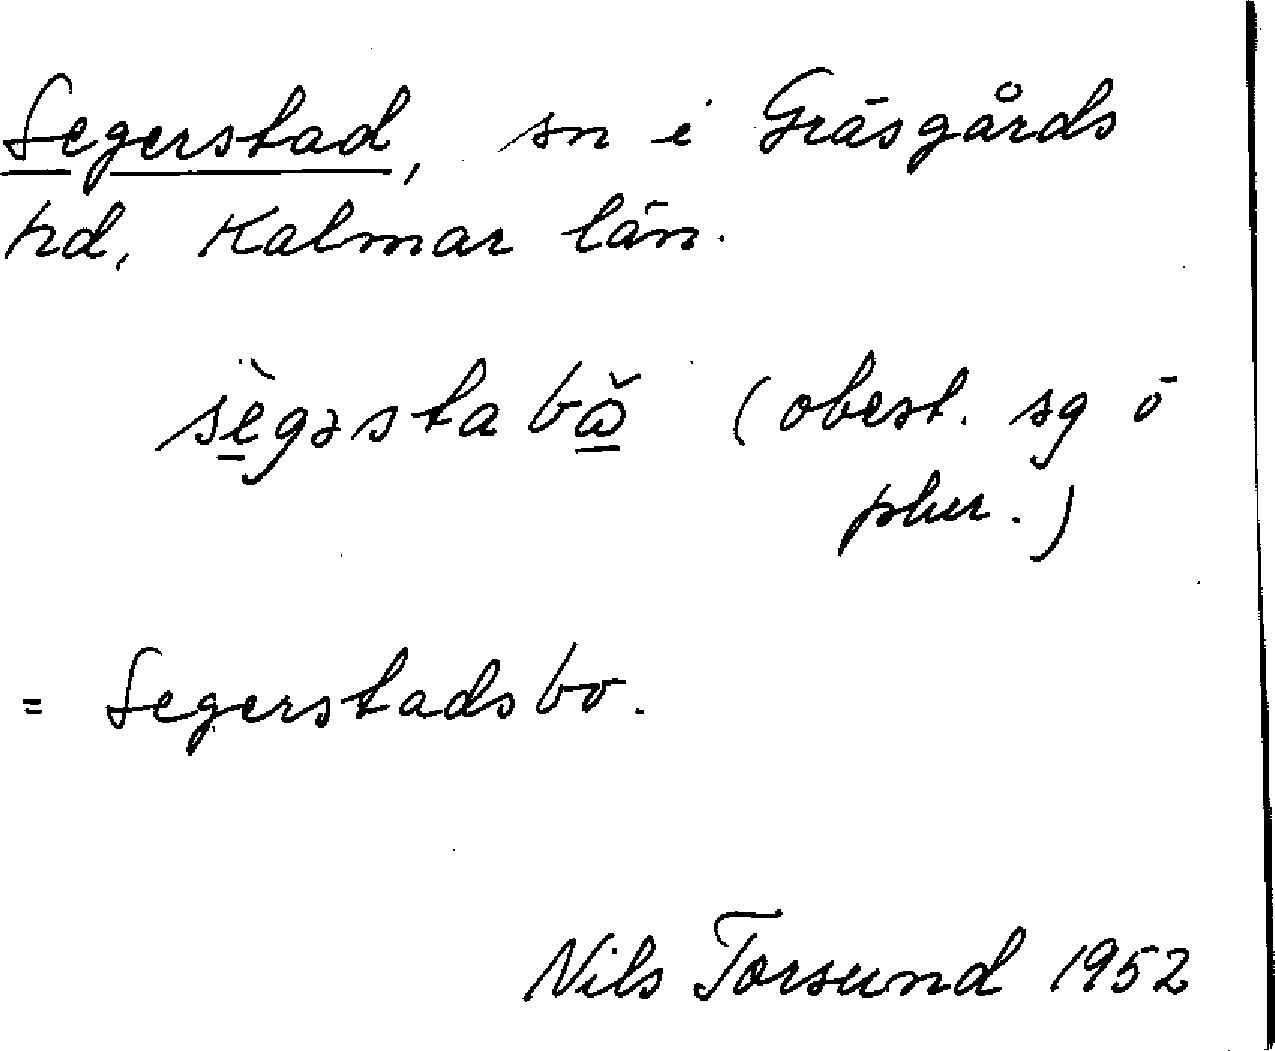 Segerstad, sn i Gräsgårds
hd, Kalmar län.
sè̱gəstabǒ̱ (obest. sg ō
plur.)
= Segerstadsbo.
Nils Torsund 1952